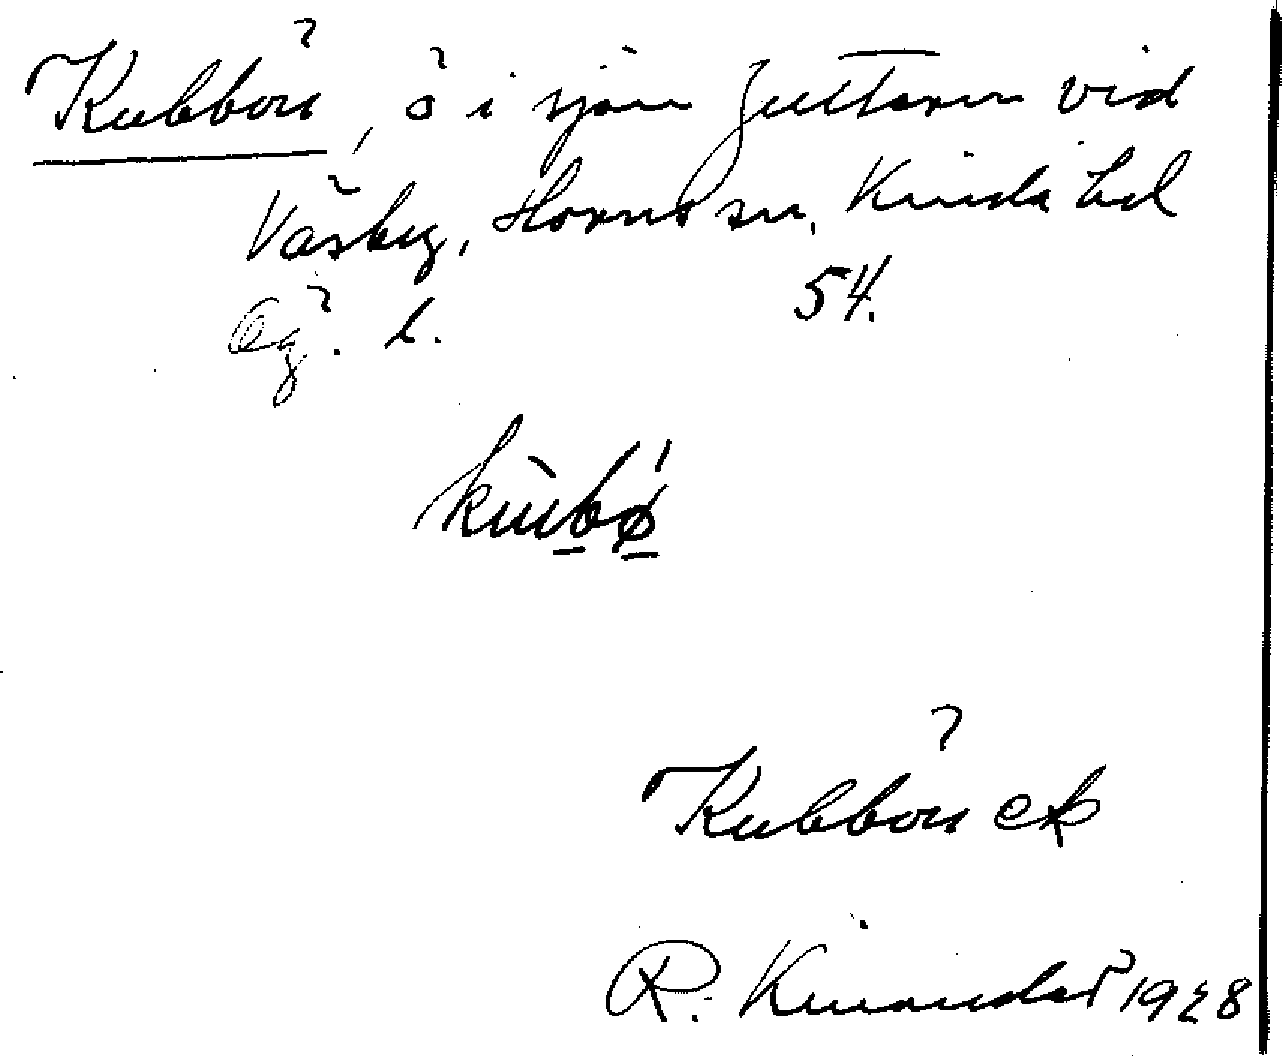 Kubbön, ö i sjön Juttern vid
Väsby, Horns sn, Kinda hd
Ög. l. 54.
kùbø̀
Kubbön ek
R. Kinander 1928